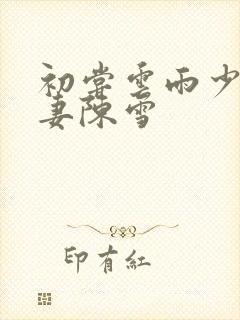 初嘗雲雨少
妻陳雪
印有紅